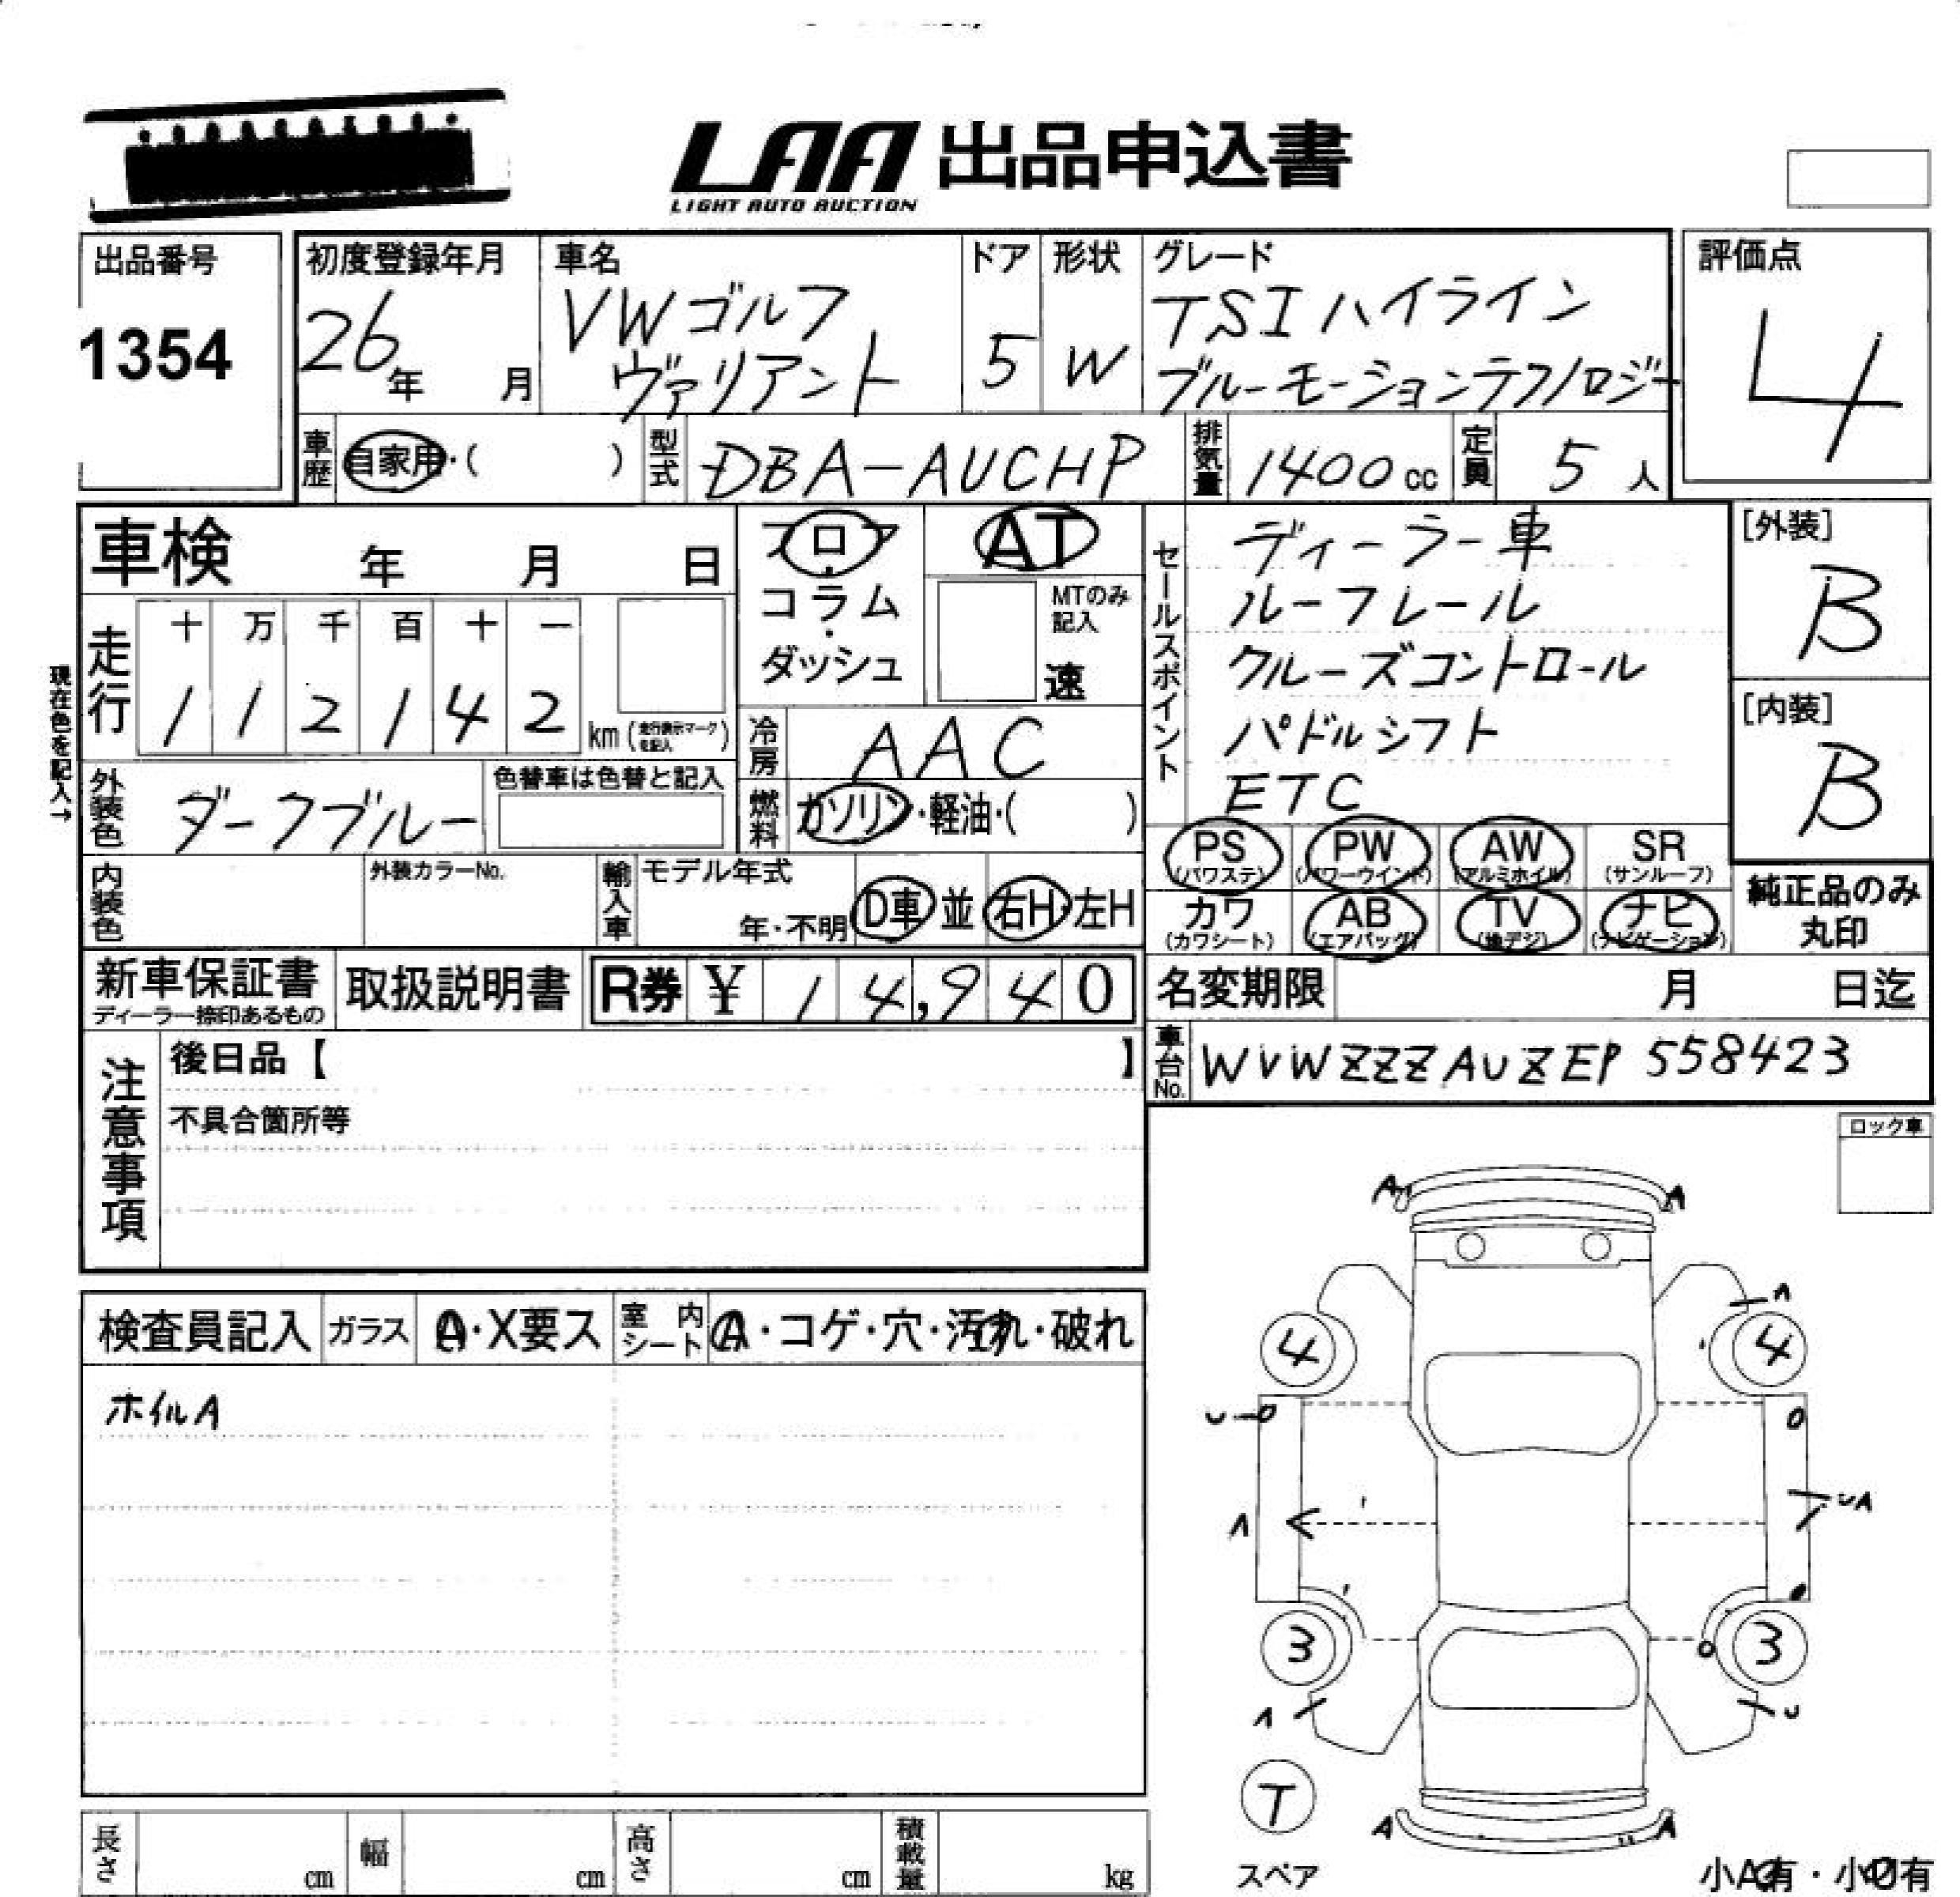 LAA 出品申込書
LIGHT AUTO AUCTION
出品番号
1354
初度登録年月
26年 月
車名
VWゴルフ
ヴァリアント
ドア
5
形状
W
グレード
TSIハイライン
ブルーモーションテクノロジー
評価点
4
車歴 自家用・( )
型式 DBA-AUCHP
排気量 1400cc
定員 5人
車検 年 月 日
フロア
・
コラム
・
ダッシュ
AT
MTのみ
記入
速
セールスポイント
ディーラー車
ルーフレール
クルーズコントロール
パドルシフト
ETC
[外装]
B
[内装]
B
現在色を記入→
走行
十 万 千 百 十 一
1 1 2 1 4 2 km(走行表示マークを記入)
冷房 AAC
外装色 ダークブルー
色替車は色替と記入
燃料 ガソリン・軽油・( )
PS
(パワステ)
PW
(パワーウインド)
AW
(アルミホイル)
SR
(サンルーフ)
カワ
(カワシート)
AB
(エアバッグ)
TV
(地デジ)
ナビ
(ナビゲーション)
純正品のみ
丸印
内装色
外装カラーNo.
輸入車
モデル年式
年・不明
D車 並
右H・左H
新車保証書
ディーラー捺印あるもの
取扱説明書
R券 ¥ 14,940
名変期限 月 日迄
車台No. WVWZZZAUZEP558423
注意事項
後日品【 】
不具合箇所等
ロック車
検査員記入 ガラス A・X要ス 室内シート A・コゲ・穴・汚れ・破れ
ホイルA
A A
A
4 4
U
A UA
3 3
A U
T
スペア
A A
長さ cm 幅 cm 高さ cm 積載量 kg
小A有・小U有